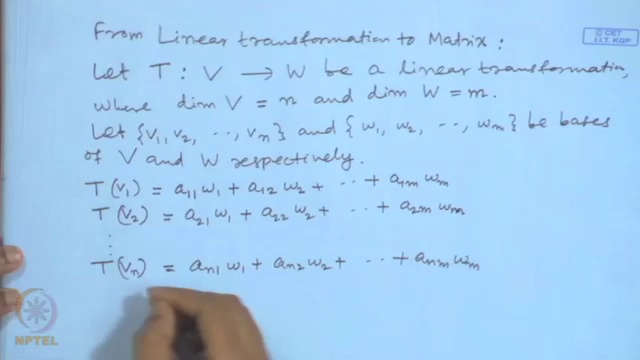 © CET
I.I.T. KGP
From Linear transformation to Matrix :
Let T : V → W be a linear transformation,
where dim V = n and dim W = m.
Let {v₁, v₂, ⋯, vₙ} and {w₁, w₂, ⋯, wₘ} be bases
of V and W respectively.
T(v₁) = a₁₁ w₁ + a₁₂ w₂ + ⋯ + a₁ₘ wₘ
T(v₂) = a₂₁ w₁ + a₂₂ w₂ + ⋯ + a₂ₘ wₘ
⋮
T(vₙ) = aₙ₁ w₁ + aₙ₂ w₂ + ⋯ + aₙₘ wₘ
NPTEL